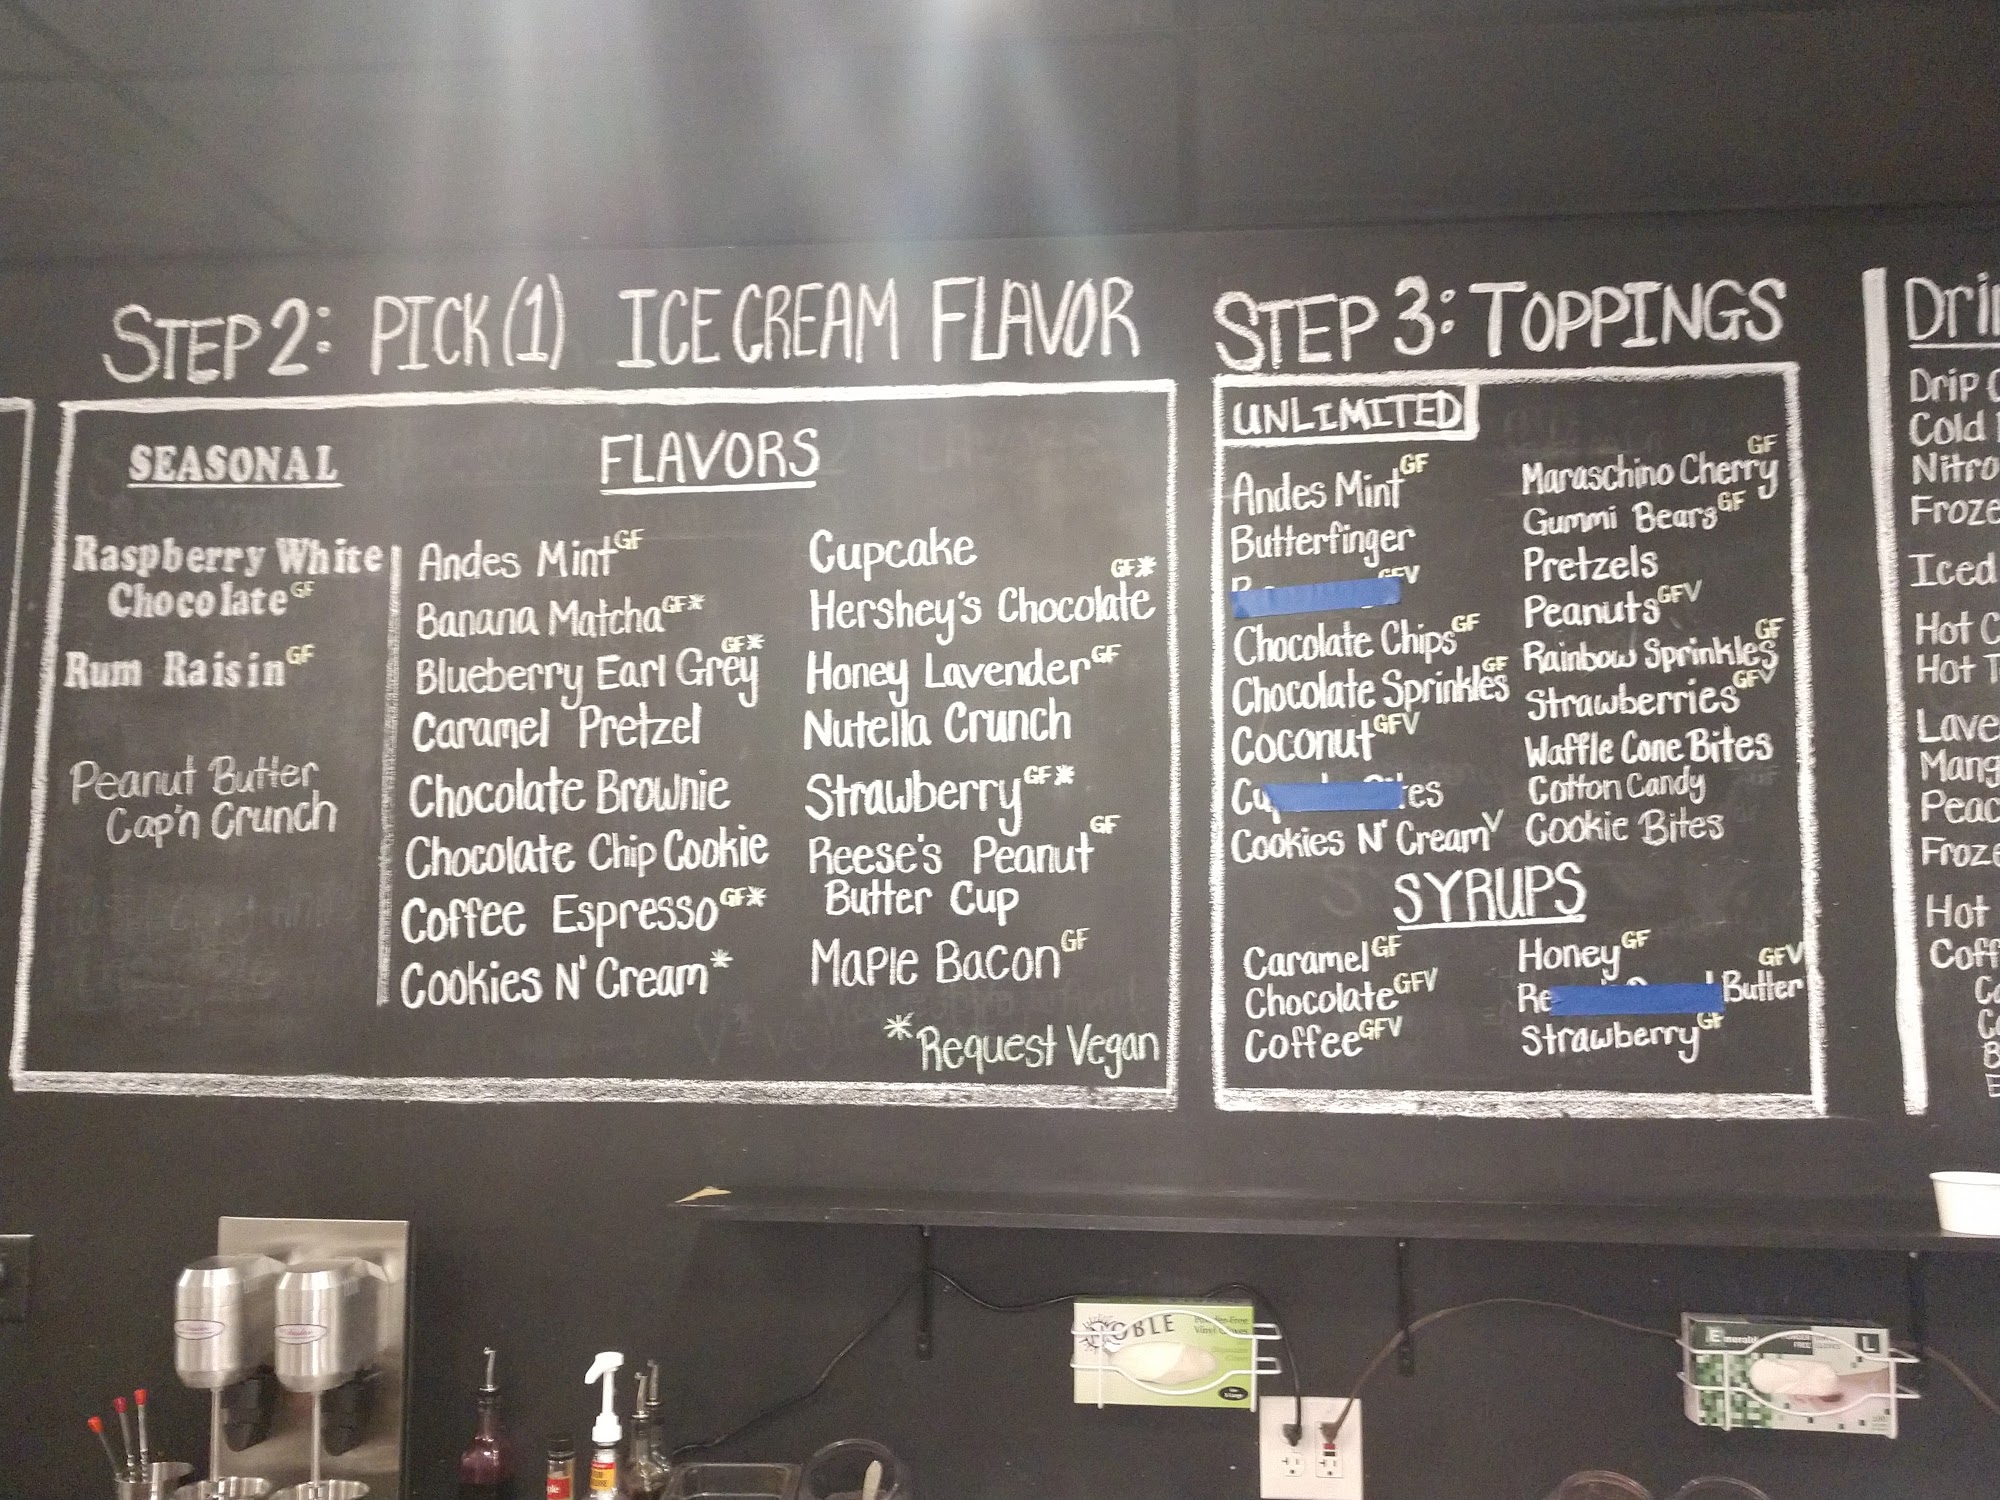 STEP 2: PICK (1) ICE CREAM FLAVOR
SEASONAL
Raspberry White
Chocolate GF
Rum Raisin GF
Peanut Butter
Cap'n Crunch
FLAVORS
Andes Mint GF
Banana Matcha GF*
Blueberry Earl Grey GF*
Caramel Pretzel
Chocolate Brownie
Chocolate Chip Cookie
Coffee Espresso GF*
Cookies N' Cream*
Cupcake
Hershey's Chocolate GF*
Honey Lavender GF
Nutella Crunch
Strawberry GF*
Reese's Peanut GF
Butter Cup
Maple Bacon GF
*Request Vegan
STEP 3: TOPPINGS
UNLIMITED
Andes Mint GF
Butterfinger
GFV
Chocolate Chips GF
Chocolate Sprinkles GF
Coconut GFV
Cookies N' Cream V
Maraschino Cherry GF
Gummi Bears GF
Pretzels
Peanuts GFV
Rainbow Sprinkles GF
Strawberries GFV
Waffle Cone Bites
Cotton Candy
Cookie Bites
SYRUPS
Caramel GF
Chocolate GFV
Coffee GFV
Honey GF
Butter GFV
Strawberry GF
Drip
Cold
Nitro
Iced
Hot
Hot
Hot
NOBLE
Vinyl Gloves
Emerald
L